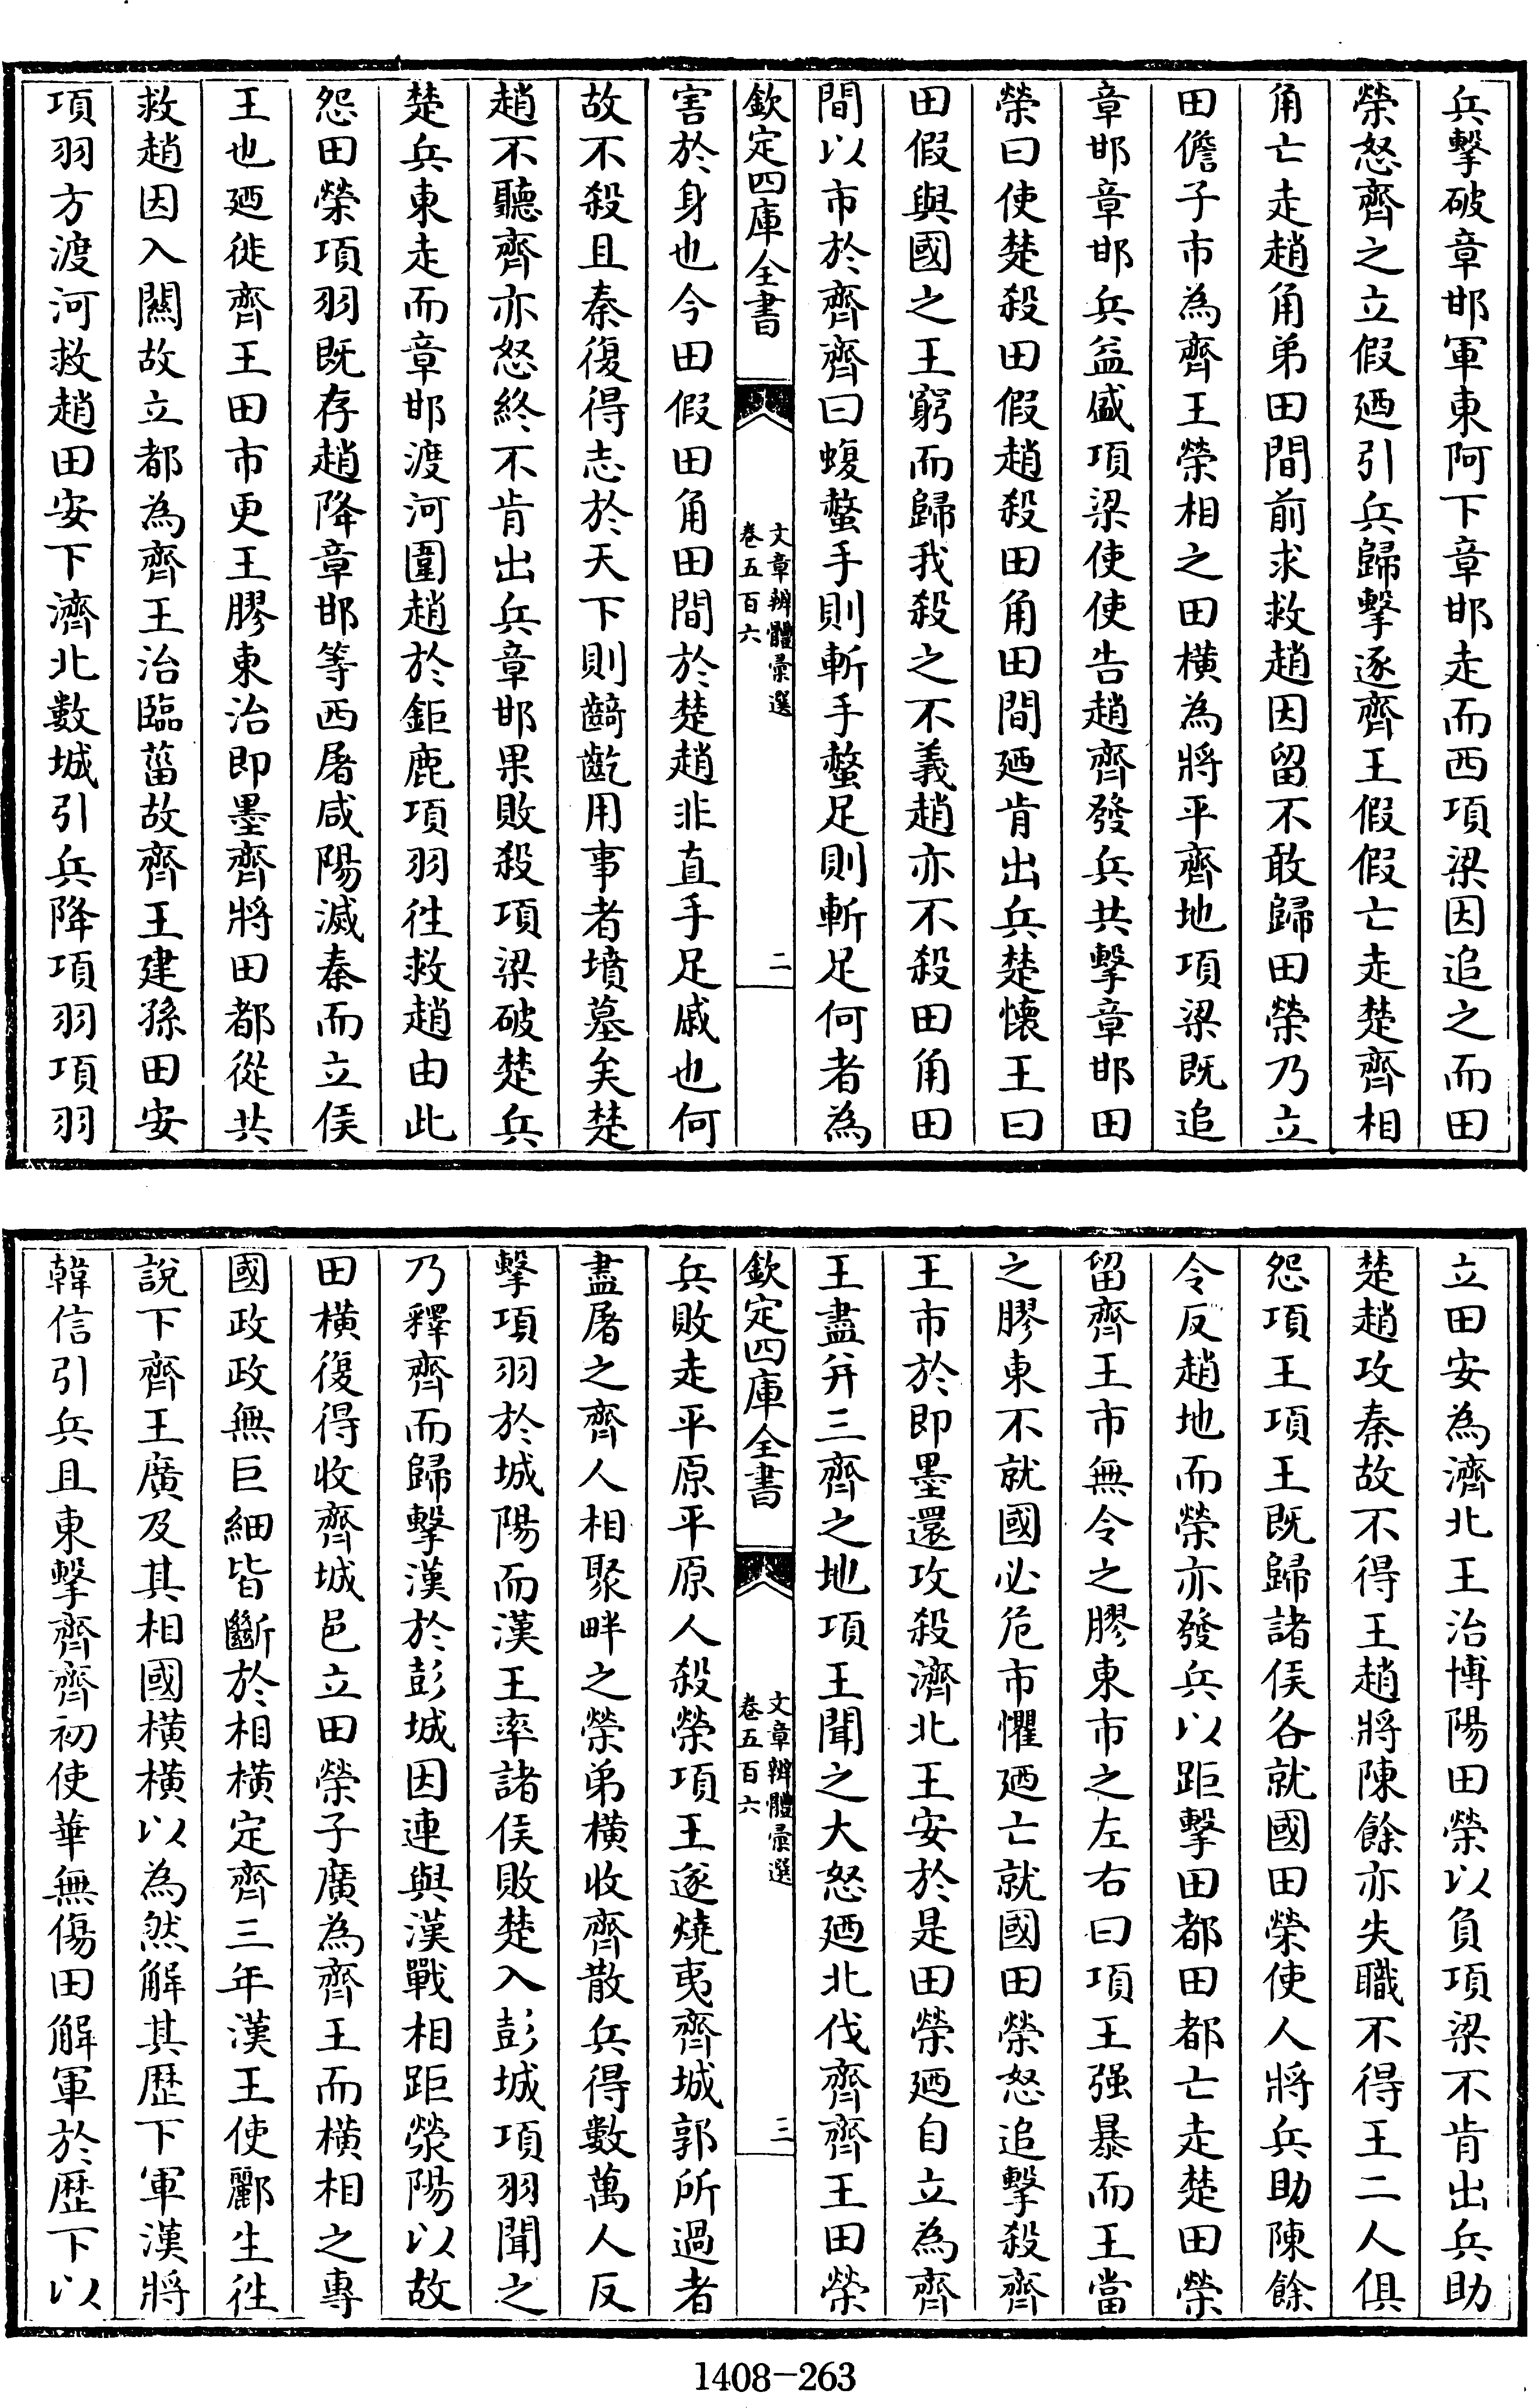 兵擊破章邯軍東阿下章邯走而西項梁因追之而田
榮怒齊之立假廼引兵歸擊逐齊王假假亡走楚齊相
角亡走趙角弟田間前求救趙因留不敢歸田榮乃立
田儋子市為齊王榮相之田橫為將平齊地項梁既追
章邯章邯兵益盛項梁使使告趙齊發兵共擊章邯田
榮曰使楚殺田假趙殺田角田間廼肯出兵楚懷王曰
田假與國之王窮而歸我殺之不義趙亦不殺田角田
間以市於齊齊曰蝮螫手則斬手螫足則斬足何者為
欽定四庫全書
文章辨體彙選
卷五百六
二
害於身也今田假田角田間於楚趙非直手足戚也何
故不殺且秦復得志於天下則齮齕用事者墳墓矣楚
趙不聽齊亦怒終不肯出兵章邯果敗殺項梁破楚兵
楚兵東走而章邯渡河圍趙於鉅鹿項羽往救趙由此
怨田榮項羽既存趙降章邯等西屠咸陽滅秦而立侯
王也廼徙齊王田市更王膠東治即墨齊將田都從共
救趙因入關故立都為齊王治臨菑故齊王建孫田安
項羽方渡河救趙田安下濟北數城引兵降項羽項羽
立田安為濟北王治博陽田榮以負項梁不肯出兵助
楚趙攻秦故不得王趙將陳餘亦失職不得王二人俱
怨項王項王既歸諸侯各就國田榮使人將兵助陳餘
令反趙地而榮亦發兵以距擊田都田都亡走楚田榮
留齊王市無令之膠東市之左右曰項王强暴而王當
之膠東不就國必危市懼廼亡就國田榮怒追擊殺齊
王市於即墨還攻殺濟北王安於是田榮廼自立為齊
王盡并三齊之地項王聞之大怒廼北伐齊齊王田榮
欽定四庫全書
文章辨體彙選
卷五百六
三
兵敗走平原平原人殺榮項王遂燒夷齊城郭所過者
盡屠之齊人相聚畔之榮弟橫收齊散兵得數萬人反
擊項羽於城陽而漢王率諸侯敗楚入彭城項羽聞之
乃釋齊而歸擊漢於彭城因連與漢戰相距滎陽以故
田橫復得收齊城邑立田榮子廣為齊王而橫相之專
國政政無巨細皆斷於相橫定齊三年漢王使酈生往
說下齊王廣及其相國橫橫以為然解其歷下軍漢將
韓信引兵且東擊齊齊初使華無傷田解軍於歷下以
1408-263